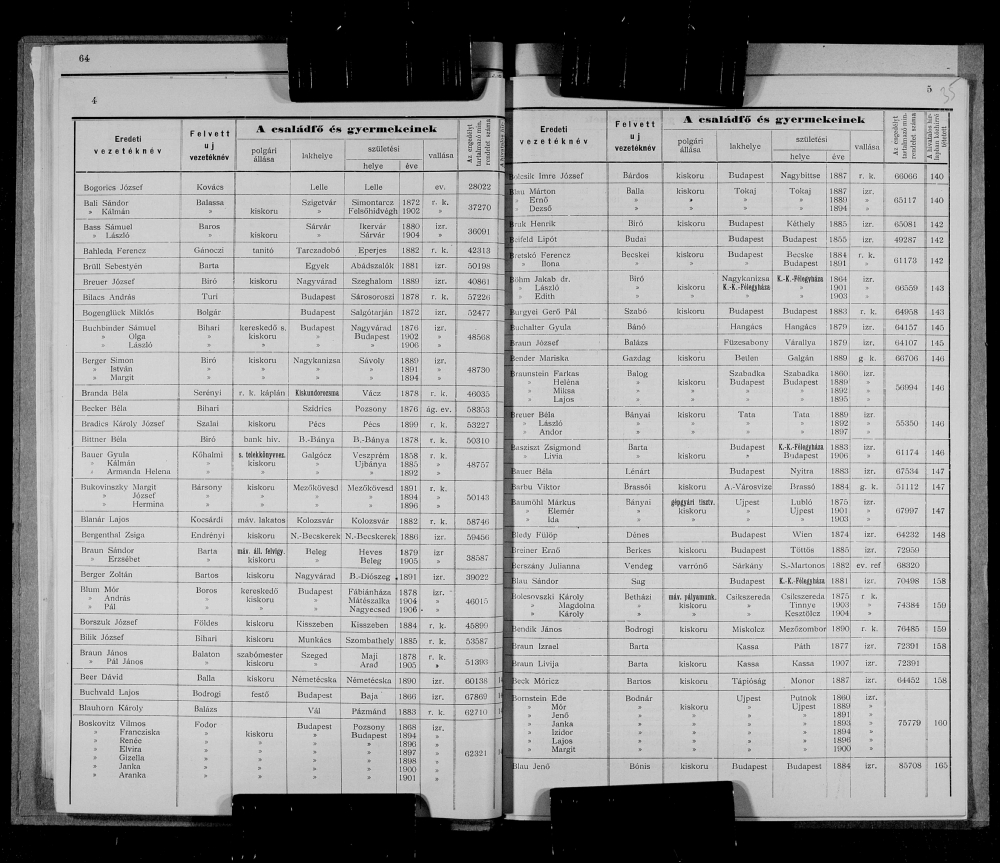 64
4
Eredeti vezetéknév | Felvett uj vezetéknév | A családfő és gyermekeinek | Az engedélyt tartalmazó min. rendelet száma
polgári állása | lakhelye | születési | vallása
helye | éve
Bogorics József | Kovács | Lelle | Lelle | ev. | 28022
Bali Sándor | Balassa | Szigetvár | Simontarcz | 1872 | r. k. | 37270
» Kálmán | » | kiskoru | » | Felsőhidvégh | 1902 | »
Bass Sámuel | Baros | Sárvár | Ikervár | 1880 | izr. | 36091
» László | » | kiskoru | » | Sárvár | 1904 | »
Bahleda Ferencz | Gánoczi | tanitó | Tarczadobó | Eperjes | 1882 | r. k. | 42313
Brüll Sebestyén | Barta | Egyek | Abádszalók | 1881 | izr. | 50198
Breuer József | Biró | kiskoru | Nagyvárad | Szeghalom | 1889 | izr. | 40861
Bilacs András | Turi | Budapest | Sárosoroszi | 1878 | r. k. | 57226
Bogenglück Miklós | Bolgár | Budapest | Salgótarján | 1872 | izr. | 52477
Buchbinder Sámuel | Bihari | kereskedő s. | Budapest | Nagyvárad | 1876 | izr. | 48568
» Olga | » | kiskoru | » | Budapest | 1902 | »
» László | » | » | » | » | 1906 | »
Berger Simon | Biró | kiskoru | Nagykanizsa | Sávoly | 1889 | izr. | 48730
» István | » | » | » | » | 1891 | »
» Margit | » | » | » | » | 1894 | »
Branda Béla | Serényi | r. k. káplán | Kiskundorozsma | Vácz | 1878 | r. k. | 46035
Becker Béla | Bihari | Szidrics | Pozsony | 1876 | ág. ev. | 58353
Bradics Károly József | Szalai | kiskoru | Pécs | Pécs | 1899 | r. k. | 53227
Bittner Béla | Biró | bank hiv. | B.-Bánya | B.-Bánya | 1878 | r. k. | 50310
Bauer Gyula | Kőhalmi | s. telekkönyvvez. | Galgócz | Veszprém | 1858 | r. k. | 48757
» Kálmán | » | kiskoru | » | Ujbánya | 1885 | »
» Armanda Helena | » | » | » | » | 1892 | »
Bukovinszky Margit | Bársony | kiskoru | Mezőkövesd | Mezőkövesd | 1891 | r. k. | 50143
» József | » | » | » | » | 1894 | »
» Hermina | » | » | » | » | 1896 | »
Blanár Lajos | Kocsárdi | máv. lakatos | Kolozsvár | Kolozsvár | 1882 | r. k. | 58746
Bergenthal Zsiga | Endrényi | kiskoru | N.-Becskerek | N.-Becskerek | 1886 | izr. | 59456
Braun Sándor | Barta | máv. áll. felvigy. | Beleg | Heves | 1879 | izr | 38587
» Erzsébet | » | kiskoru | » | Beleg | 1905 | »
Berger Zoltán | Bartos | kiskoru | Nagyvárad | B.-Diószeg | 1891 | izr. | 39022
Blum Mór | Boros | kereskedő | Budapest | Fábiánháza | 1878 | izr. | 46015
» András | » | kiskoru | » | Mátészalka | 1904 | »
» Pál | » | » | » | Nagyecsed | 1906 | »
Borszuk József | Földes | kiskoru | Kisszeben | Kisszeben | 1884 | r. k. | 45899
Bilik József | Bihari | kiskoru | Munkács | Szombathely | 1885 | r. k. | 53587
Braun János | Balaton | szabómester | Szeged | Maji | 1878 | r. k. | 51393
» Pál János | » | kiskoru | » | Arad | 1905 | »
Beer Dávid | Balla | kiskoru | Németécska | Németécska | 1890 | izr. | 60138
Buchvald Lajos | Bodrogi | festő | Budapest | Baja | 1866 | izr. | 67869
Blauhorn Károly | Balázs | Vál | Pázmánd | 1883 | r. k. | 62710
Boskovitz Vilmos | Fodor | Budapest | Pozsony | 1868 | izr. | 62321
» Francziska | » | kiskoru | » | Budapest | 1894 | »
» Renée | » | » | » | » | 1896 | »
» Elvira | » | » | » | » | 1897 | »
» Gizella | » | » | » | » | 1898 | »
» Janka | » | » | » | » | 1900 | »
» Aranka | » | » | » | » | 1901 | »
5
35
Eredeti vezetéknév | Felvett uj vezetéknév | A családfő és gyermekeinek | Az engedélyt tartalmazó min. rendelet száma | A hivatalos közlapban közhirré tétetett
polgári állása | lakhelye | születési | vallása
helye | éve
Bolcsik Imre József | Bárdos | kiskoru | Budapest | Nagybittse | 1887 | r. k. | 66066 | 140
Blau Márton | Balla | kiskoru | Tokaj | Tokaj | 1887 | izr. | 65117 | 140
» Ernő | » | » | » | » | 1889 | »
» Dezső | » | » | » | » | 1894 | »
Bruk Henrik | Biró | kiskoru | Budapest | Kéthely | 1885 | izr. | 65081 | 142
Beifeld Lipót | Budai | Budapest | Budapest | 1855 | izr. | 49287 | 142
Bretskó Ferencz | Becskei | kiskoru | Budapest | Becske | 1884 | r. k. | 61173 | 142
» Ilona | » | » | » | Budapest | 1891 | »
Böhm Jakab dr. | Biró | Nagykanizsa | K.-K.-Félegyháza | 1864 | izr. | 66559 | 143
» László | » | kiskoru | K.-K.-Félegyháza | » | 1901 | »
» Edith | » | » | » | » | 1903 | »
Burgyei Gerő Pál | Szabó | kiskoru | Budapest | Budapest | 1883 | r. k. | 64958 | 143
Buchalter Gyula | Bánó | Hangács | Hangács | 1879 | izr. | 64157 | 145
Braun József | Balázs | Füzesabony | Várallya | 1879 | izr. | 64107 | 145
Bender Mariska | Gazdag | kiskoru | Beilen | Galgán | 1889 | g k. | 66706 | 146
Braunstein Farkas | Balog | Szabadka | Szabadka | 1860 | izr. | 56994 | 146
» Heléna | » | kiskoru | Budapest | Budapest | 1889 | »
» Miksa | » | » | » | » | 1892 | »
» Lajos | » | » | » | » | 1895 | »
Breuer Béla | Bányai | kiskoru | Tata | Tata | 1889 | izr. | 55350 | 146
» László | » | » | » | » | 1892 | »
» Andor | » | » | » | » | 1897 | »
Basziszt Zsigmond | Barta | Budapest | K.-K.-Félegyháza | 1883 | izr. | 61174 | 146
» Livia | » | kiskoru | » | Budapest | 1906 | »
Bauer Béla | Lénárt | Budapest | Nyitra | 1883 | izr. | 67534 | 147
Barbu Viktor | Brassói | kiskoru | A.-Városvize | Brassó | 1884 | g. k. | 51112 | 147
Baumöhl Márkus | Bányai | gépgyári tisztv. | Ujpest | Lubló | 1875 | izr. | 67997 | 147
» Elemér | » | kiskoru | » | Ujpest | 1901 | »
» Ida | » | » | » | » | 1903 | »
Bledy Fülöp | Dénes | Budapest | Wien | 1874 | izr. | 64232 | 148
Breiner Ernő | Berkes | kiskoru | Budapest | Töttös | 1885 | izr. | 72959
Berszány Julianna | Vendeg | varrónő | Sárkány | S.-Martonos | 1882 | ev. ref | 68320
Blau Sándor | Sag | Budapest | K.-K.-Félegyháza | 1881 | izr. | 70498 | 158
Bolesovszki Károly | Betházi | máv. pályamunk. | Csikszereda | Csikszereda | 1875 | r k. | 74384 | 159
» Magdolna | » | kiskoru | » | Tinnye | 1903 | »
» Károly | » | » | » | Kesztölcz | 1904 | »
Bendik János | Bodrogi | kiskoru | Miskolcz | Mezőzombor | 1890 | r. k. | 76485 | 159
Braun Izrael | Barta | Kassa | Páth | 1877 | izr. | 72391 | 158
Braun Livija | Barta | kiskoru | Kassa | Kassa | 1907 | izr. | 72391
Beck Móricz | Bartos | kiskoru | Tápióság | Monor | 1887 | izr. | 64452 | 158
Bornstein Ede | Bodnár | Ujpest | Putnok | 1860 | izr. | 75779 | 160
» Mór | » | kiskoru | » | Ujpest | 1889 | »
» Jenő | » | » | » | » | 1891 | »
» Janka | » | » | » | » | 1893 | »
» Izidor | » | » | » | » | 1894 | »
» Lajos | » | » | » | » | 1896 | »
» Margit | » | » | » | » | 1900 | »
Blau Jenő | Bónis | kiskoru | Budapest | Budapest | 1884 | izr. | 85708 | 165